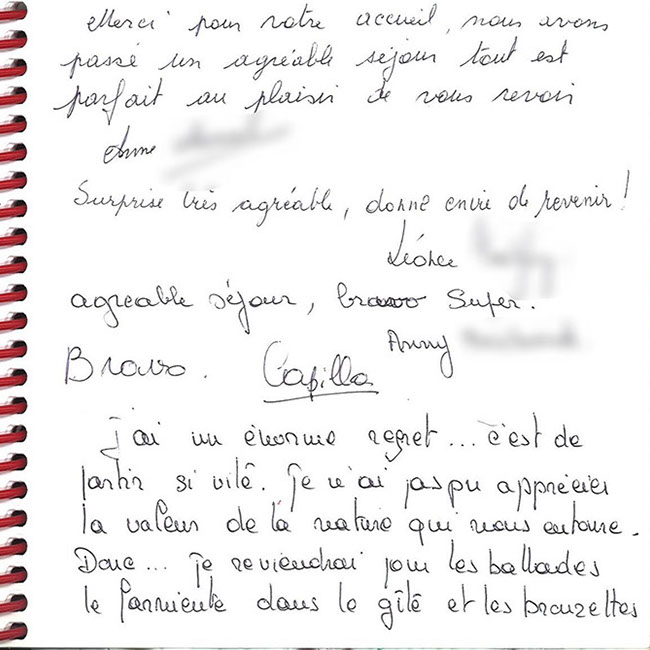 Merci pour votre accueil, nous avons
passé un agréable séjour tout est
parfait au plaisir de vous revoir
Anne
Surprise très agréable, donne envie de revenir !
Léonce
agreable séjour, bravo Super.
Anny
Bravo. Capilla
J'ai un énorme regret... c'est de
partir si vite. Je n'ai pas pu apprécier
la valeur de la nature qui nous entoure.
Donc... je reviendrai pour les ballades
le farniente dans le gîte et les bronzettes